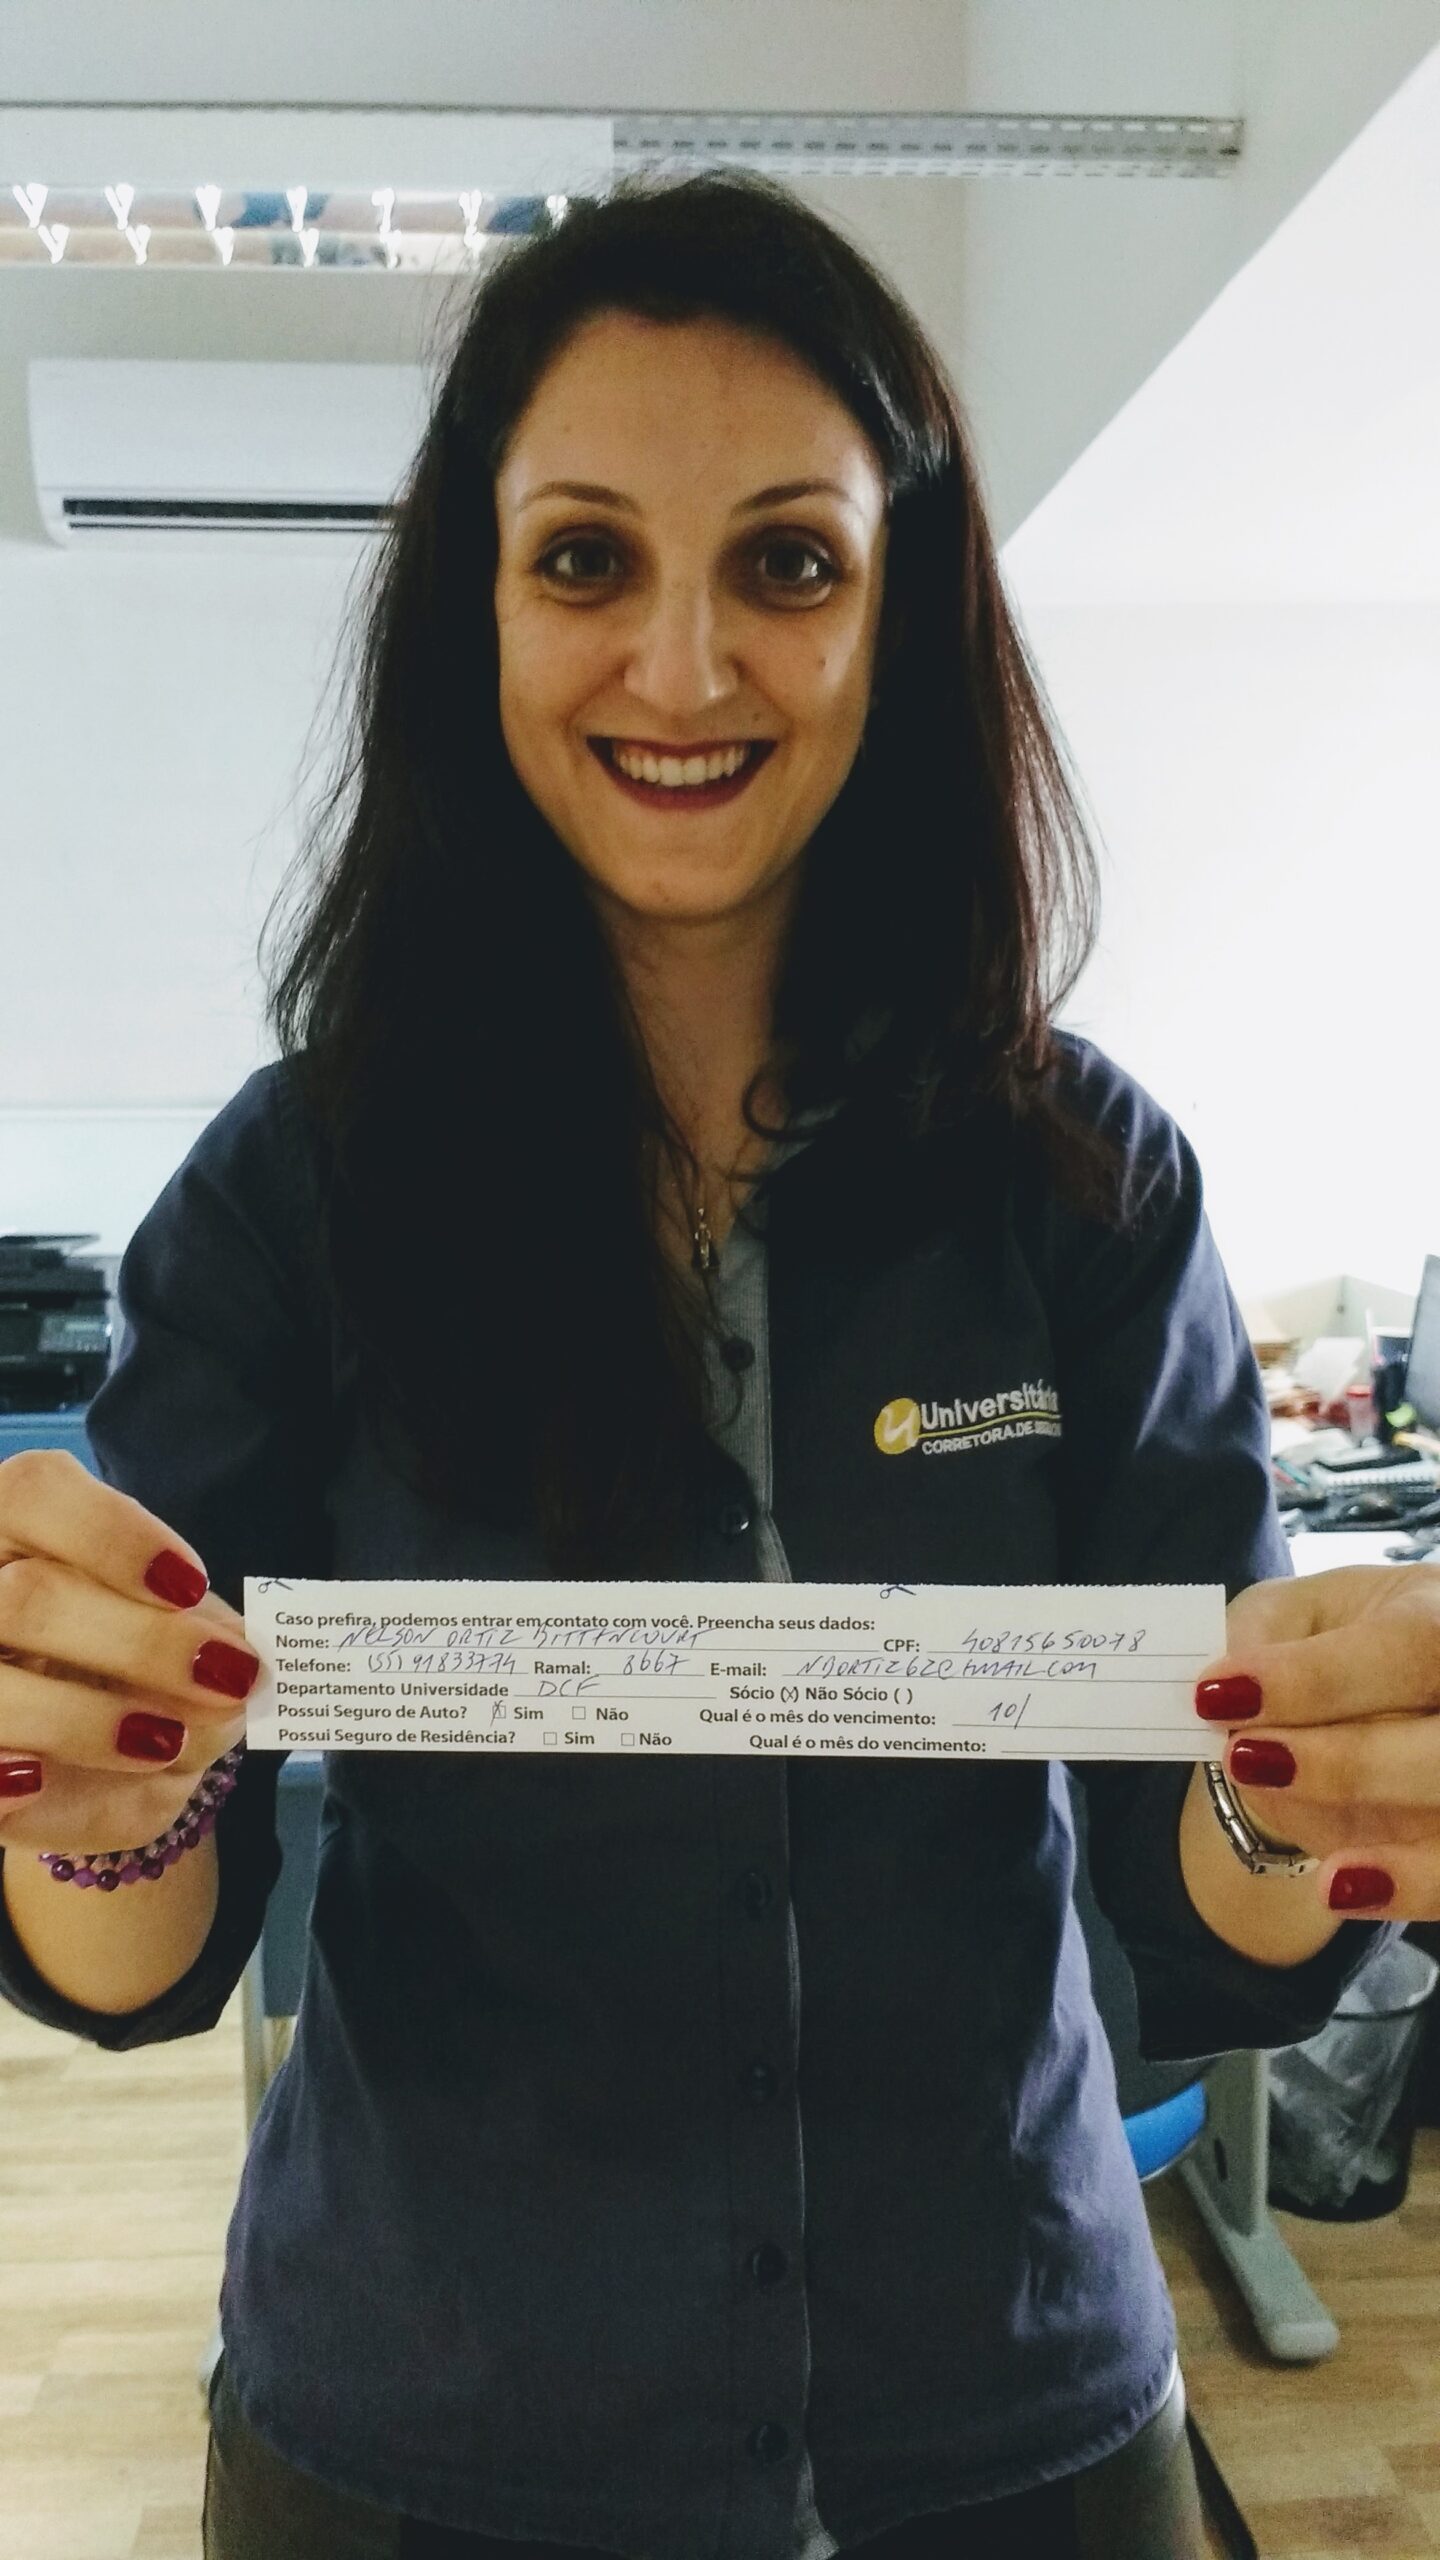 Universitária
CORRETORA DE
Caso prefira, podemos entrar em contato com você. Preencha seus dados:
Nome: NELSON ORTIZ BITTENCOURT CPF: 40815650078
Telefone: (55) 91833774 Ramal: 8667 E-mail: NBORTIZ62@HMAIL.COM
Departamento Universidade DCF Sócio (X) Não Sócio ( )
Possui Seguro de Auto? ☒ Sim ☐ Não Qual é o mês do vencimento: 10/
Possui Seguro de Residência? ☐ Sim ☐ Não Qual é o mês do vencimento: